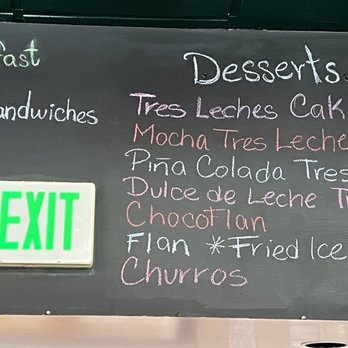 fast
andwiches
EXIT
Desserts
Tres Leches Cak
Mocha Tres Leche
Piña Colada Tres
Dulce de Leche T
ChocoFlan
Flan *Fried Ice
Churros